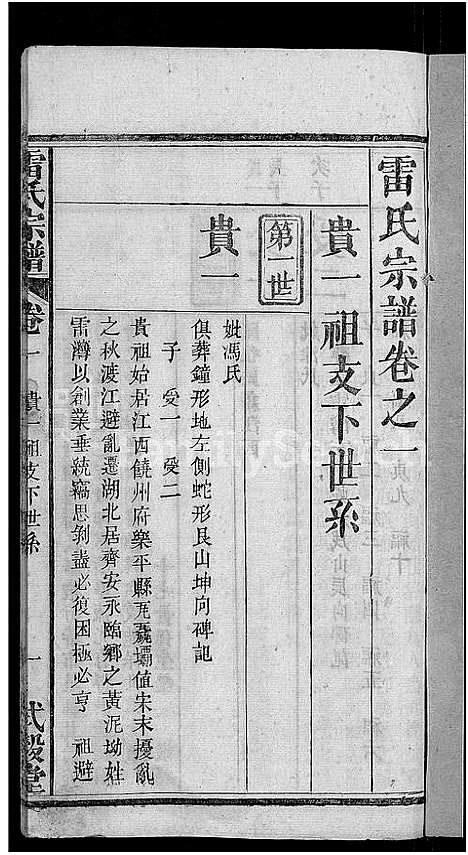 雷氏宗譜卷之一
貴一祖支下世系
第一世
貴一
妣馮氏
俱葬鐘形地左側蛇形艮山坤向碑記
子 受一 受二
貴祖始居江西饒州府樂平縣瓦礶壩值宋末擾亂
之秋渡江避亂遷湖北居齊安永臨鄉之黃泥坳姓
雷海以創業垂統竊思剝盡必復困極必亨 祖避
雷氏宗譜 卷一 貴一祖支下世系 一 式穀堂